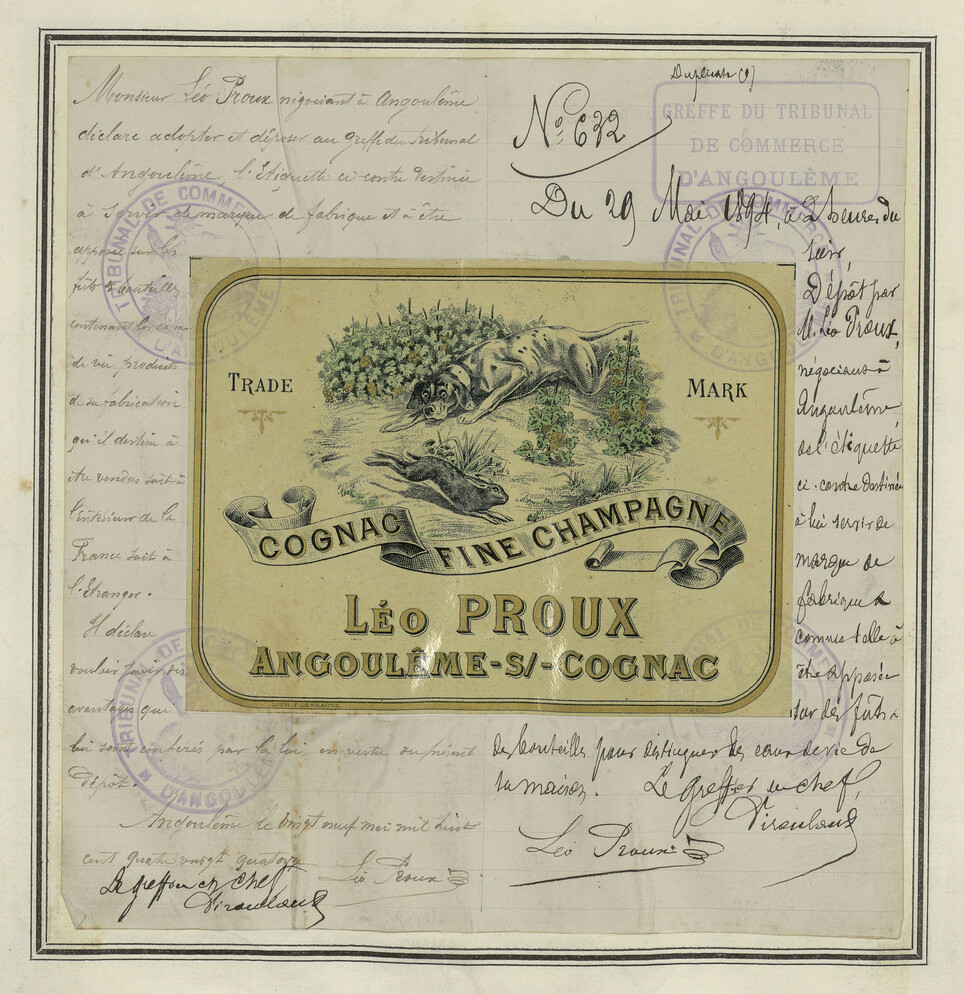 Duplicata (1)
Monsieur Léo Proux négociant à Angoulême
déclare adopter et déposer au Greffe du tribunal
d'Angoulême, l'Etiquette ci-contre destinée
à servir de marque de fabrique et à être
apposée sur les
fûts & bouteilles
contenant les eaux
de vie produits
de sa fabrication
qu'il destine à
être vendus soit à
l'intérieur de la
France soit à
l'Etranger.
Il déclare
vouloir jouir des
avantages que
lui sont conférés par la loi en vertu du présent
dépôt.
Angoulême le vingt neuf mai mil huit
cent quatre vingt quatorze
Le greffier en chef
Léo Proux
GREFFE DU TRIBUNAL
DE COMMERCE
D'ANGOULÊME
No. 632
Du 29 Mai 1894, à 2 heures du
soir,
Dépôt par
M. Léo Proux,
négociant à
Angoulême
de l'étiquette
ci-contre destinée
à lui servir de
marque de
fabrique &
comme telle à
être apposée
sur des fûts &
des bouteilles pour distinguer des eaux de vie de
sa maison. Le greffier en chef,
Léo Proux
TRADE MARK
COGNAC FINE CHAMPAGNE
LÉO PROUX
ANGOULÊME-S/-COGNAC
TRIBUNAL DE COMMERCE
D'ANGOULÊME
TRIBUNAL DE COMMERCE
D'ANGOULÊME
TRIBUNAL DE COMMERCE
D'ANGOULÊME